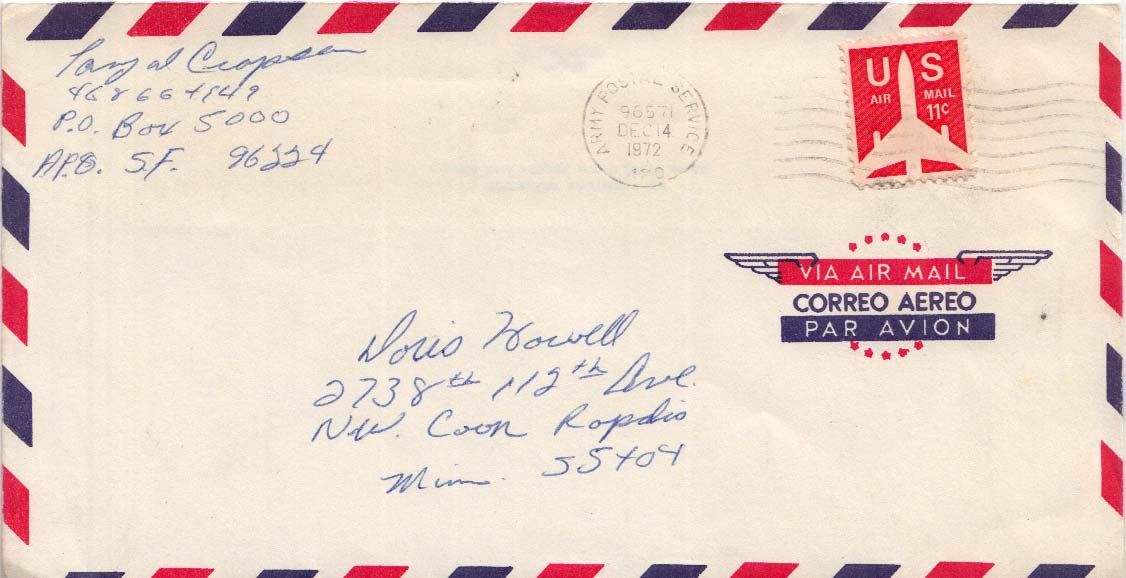 468664149
P.O. Box 5000
A.P.O. S.F. 96224
ARMY POSTAL SERVICE
96571
DEC 14
1972
US
AIR MAIL
11c
VIA AIR MAIL
CORREO AEREO
PAR AVION
Doris Howell
2738th 112th Ave.
N.W. Coon Rapids
Minn. 55404